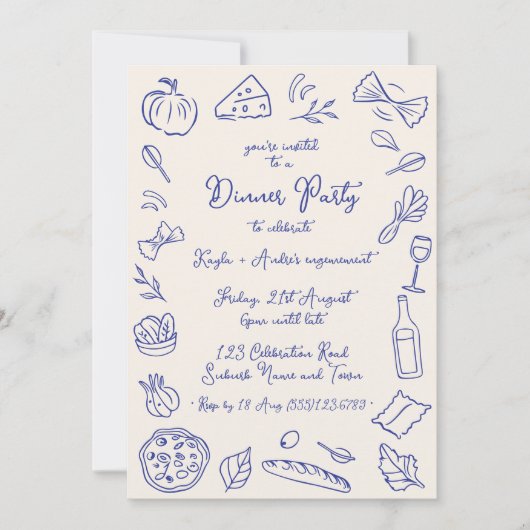 you're invited
to a
Dinner Party
to celebrate
Kayla + Andre's engemement
Friday, 21st August
6pm until late
123 Celebration Road
Suburb Name and Town
• Rsvp by 18 Aug (555)123.6789 •